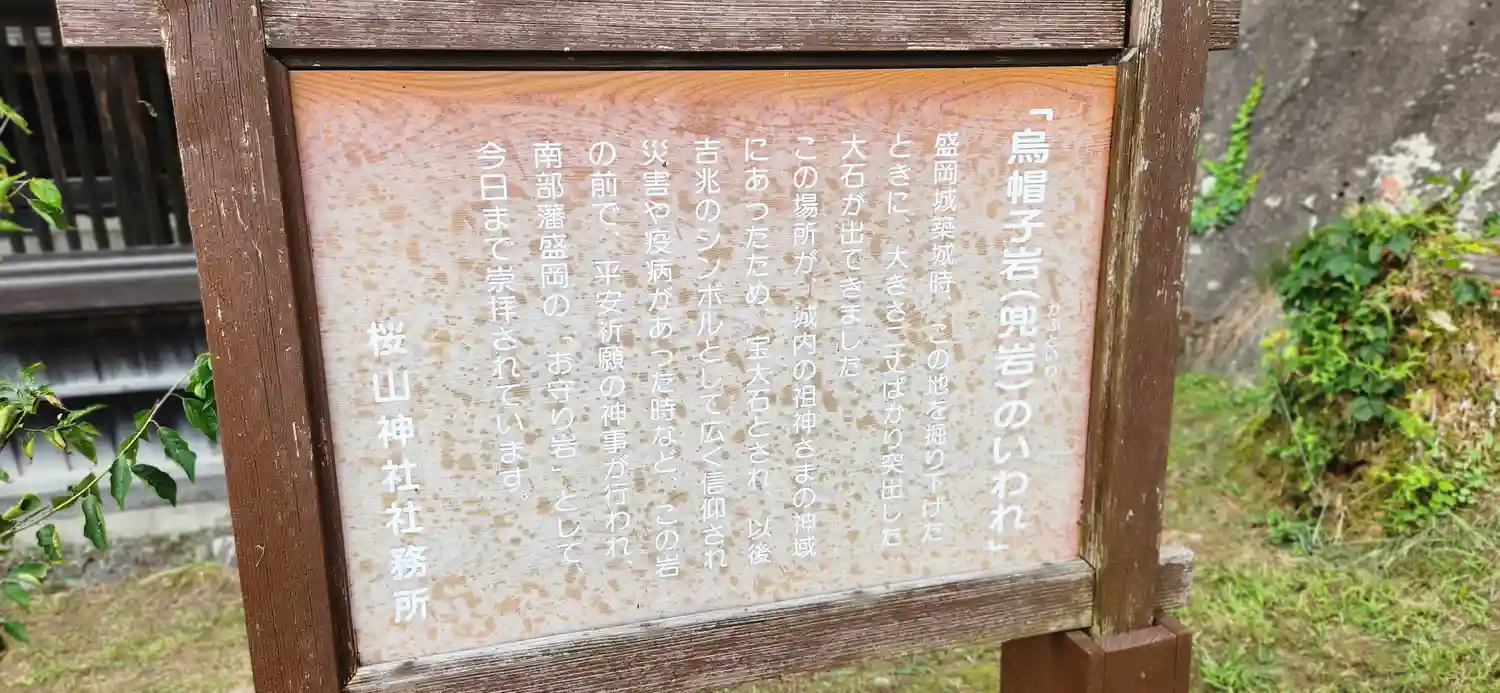 「烏帽子岩(兜岩)のいわれ」
かぶといわ
盛岡城築城時、この地を掘り下げた
ときに、大きさ二丈ばかり突出した
大石が出てきました。
この場所が、城内の祖神さまの神域
にあったため、宝大石とされ、以後
吉兆のシンボルとして広く信仰され
災害や疫病があった時など、この岩
の前で、平安祈願の神事が行われ、
南部藩盛岡の「お守り岩」として、
今日まで崇拝されています。
桜山神社社務所